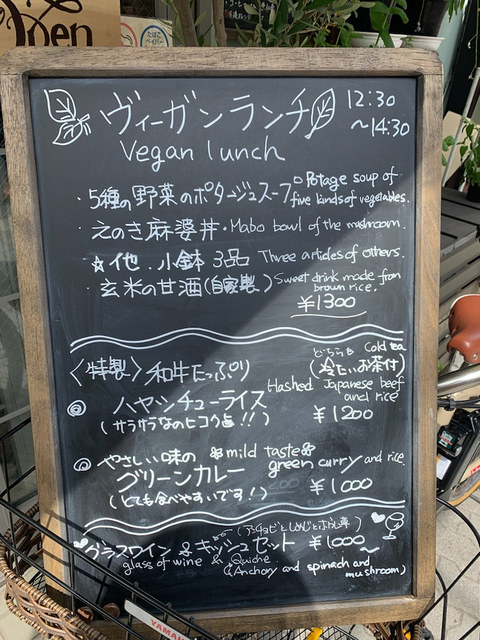 open
ヴィーガンランチ 12:30
～14:30
Vegan lunch
・5種の野菜のポタージュスープ
Potage soup of
five kinds of vegetables.
・えのき麻婆丼・Mabo bowl of the mushroom.
☆他、小鉢 3品 Three articles of others.
・玄米の甘酒(自家製) Sweet drink made from
brown rice.
¥1300
〈特製〉和牛たっぷり
どちらも Cold tea
(冷たいお茶付)
◎ ハヤシチューライス
Hashed Japanese beef
and rice
¥1200
◎ やさしい味の mild taste
グリーンカレー green curry and rice.
(とても食べやすいです！) ¥1000
グラスワイン & キッシュセット ¥1000～
glass of wine & Quiche
(Anchory and spinach and
mushroom)
YAMAH